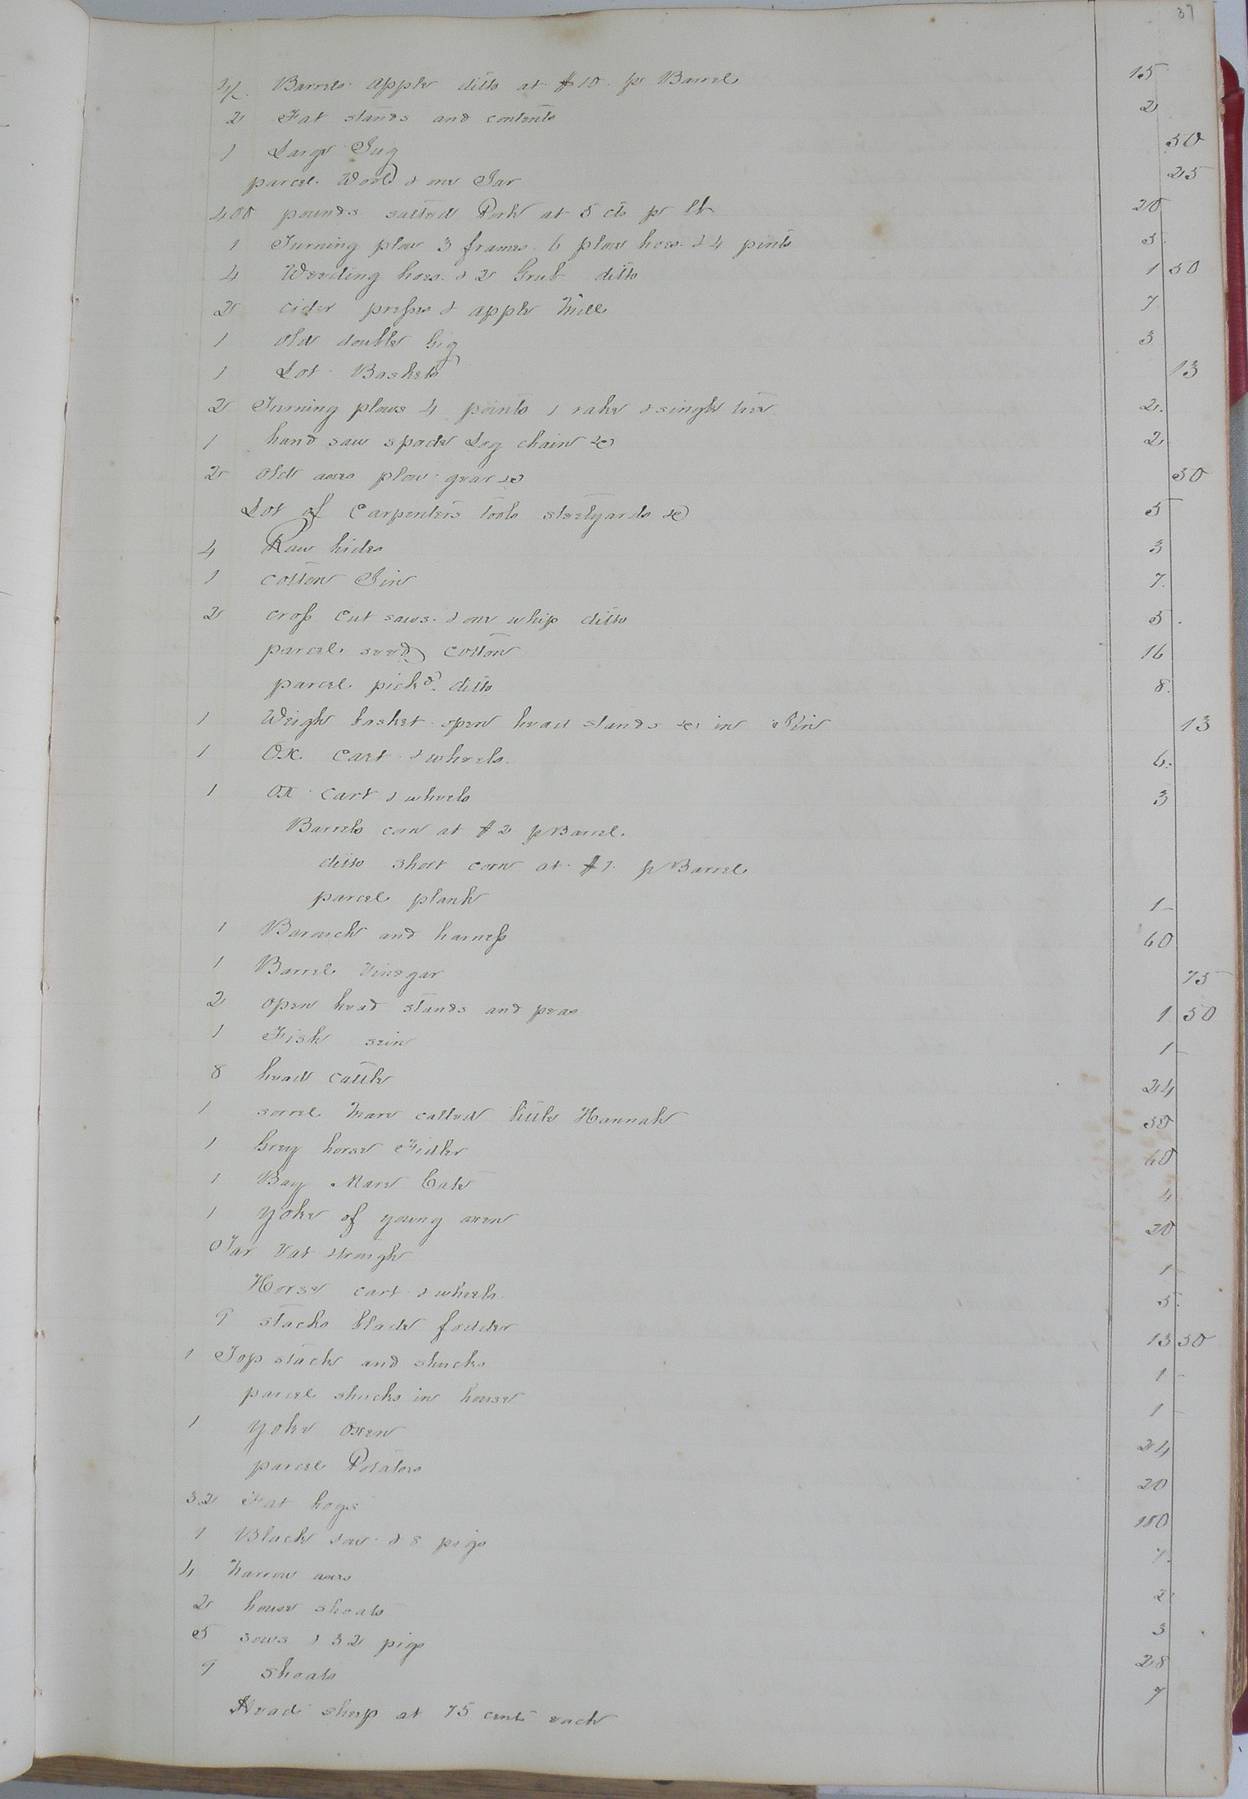 37
1/2 Barrels apple ditto at $10 pr Barrel 15
2 Fat stands and contents 2
1 Large Jug 50
parcel Wool & one Jar 25
400 pounds salted Pork at 5 cts pr lb 20
1 Turning plow 3 frames 6 plow hoes & 4 points 5
4 Weeding hoes & 2 Grub ditto 1 50
2 cider presses & apple Mill 7
1 old double Gig 3
1 Lot Baskets 13
2 Turning plows 4 points 1 rake & single tree 2
1 hand saw spade Log chain &c 2
2 old axes plow gear &c 50
Lot of Carpenters tools steelyards &c 5
4 Raw hides 3
1 cotton Gin 7
2 cross cut saws & one whip ditto 5
parcel seed cotton 16
parcel pickd ditto 8
1 Weigh basket open head stands &c in Gin 13
1 Ox cart & wheels 6
1 Ox cart & wheels 3
Barrels corn at $2 pr Barrel
ditto short corn at $1 pr Barrel
parcel plank 1
1 Barouch and harness 60
1 Barrel Vinegar 75
2 open head stands and peas 1 50
1 Fish sein 1
8 head cattle 24
1 sorrel Mare called little Hannah 50
1 Grey horse Fidler 60
1 Bay Mare Cate 4
1 yoke of young oxen 20
Tar Vat & trough 1
Horse cart & wheels 5
9 stacks blade fodder 13 50
1 Top stack and shucks 1
parcel shucks in house 1
1 yoke oxen 24
parcel Potatoes 20
32 Fat hogs 180
1 Black sow & 8 pigs 7
4 Narrow axes 2
2 house shoats 3
5 sows & 32 pigs 28
9 shoats 7
Head sheep at 75 cents each